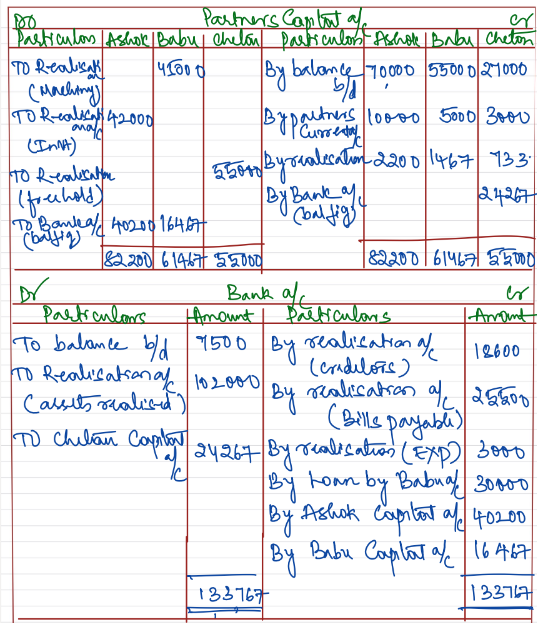 Dr Partners Capital a/c Cr
Particulars Ashok Babu Chetan Particulars Ashok Babu Chetan
TO Realisation a/c 45000 By balance b/d 70000 55000 27000
(Machinery)
TO Realisation a/c 42000 By partners Currentac/c 10000 5000 3000
(Invt)
TO Realisation 55000 By realisation 2200 1467 733
(freehold) By Bank a/c 24267
TO Bank a/c 40200 16467 (balfig)
(balfig)
82200 61467 55000 82200 61467 55000
Dr Bank a/c Cr
Particulars Amount Particulars Amount
To balance b/d 7500 By realisation a/c 18600
(creditors)
TO Realisation a/c 102000 By realisation a/c 25500
(assets realised) (Bills payable)
TO Chetan Capital a/c 24267 By realisation (EXP) 3000
By Loan by Babu a/c 30000
By Ashok Capital a/c 40200
By Babu Capital a/c 16467
133767 133767